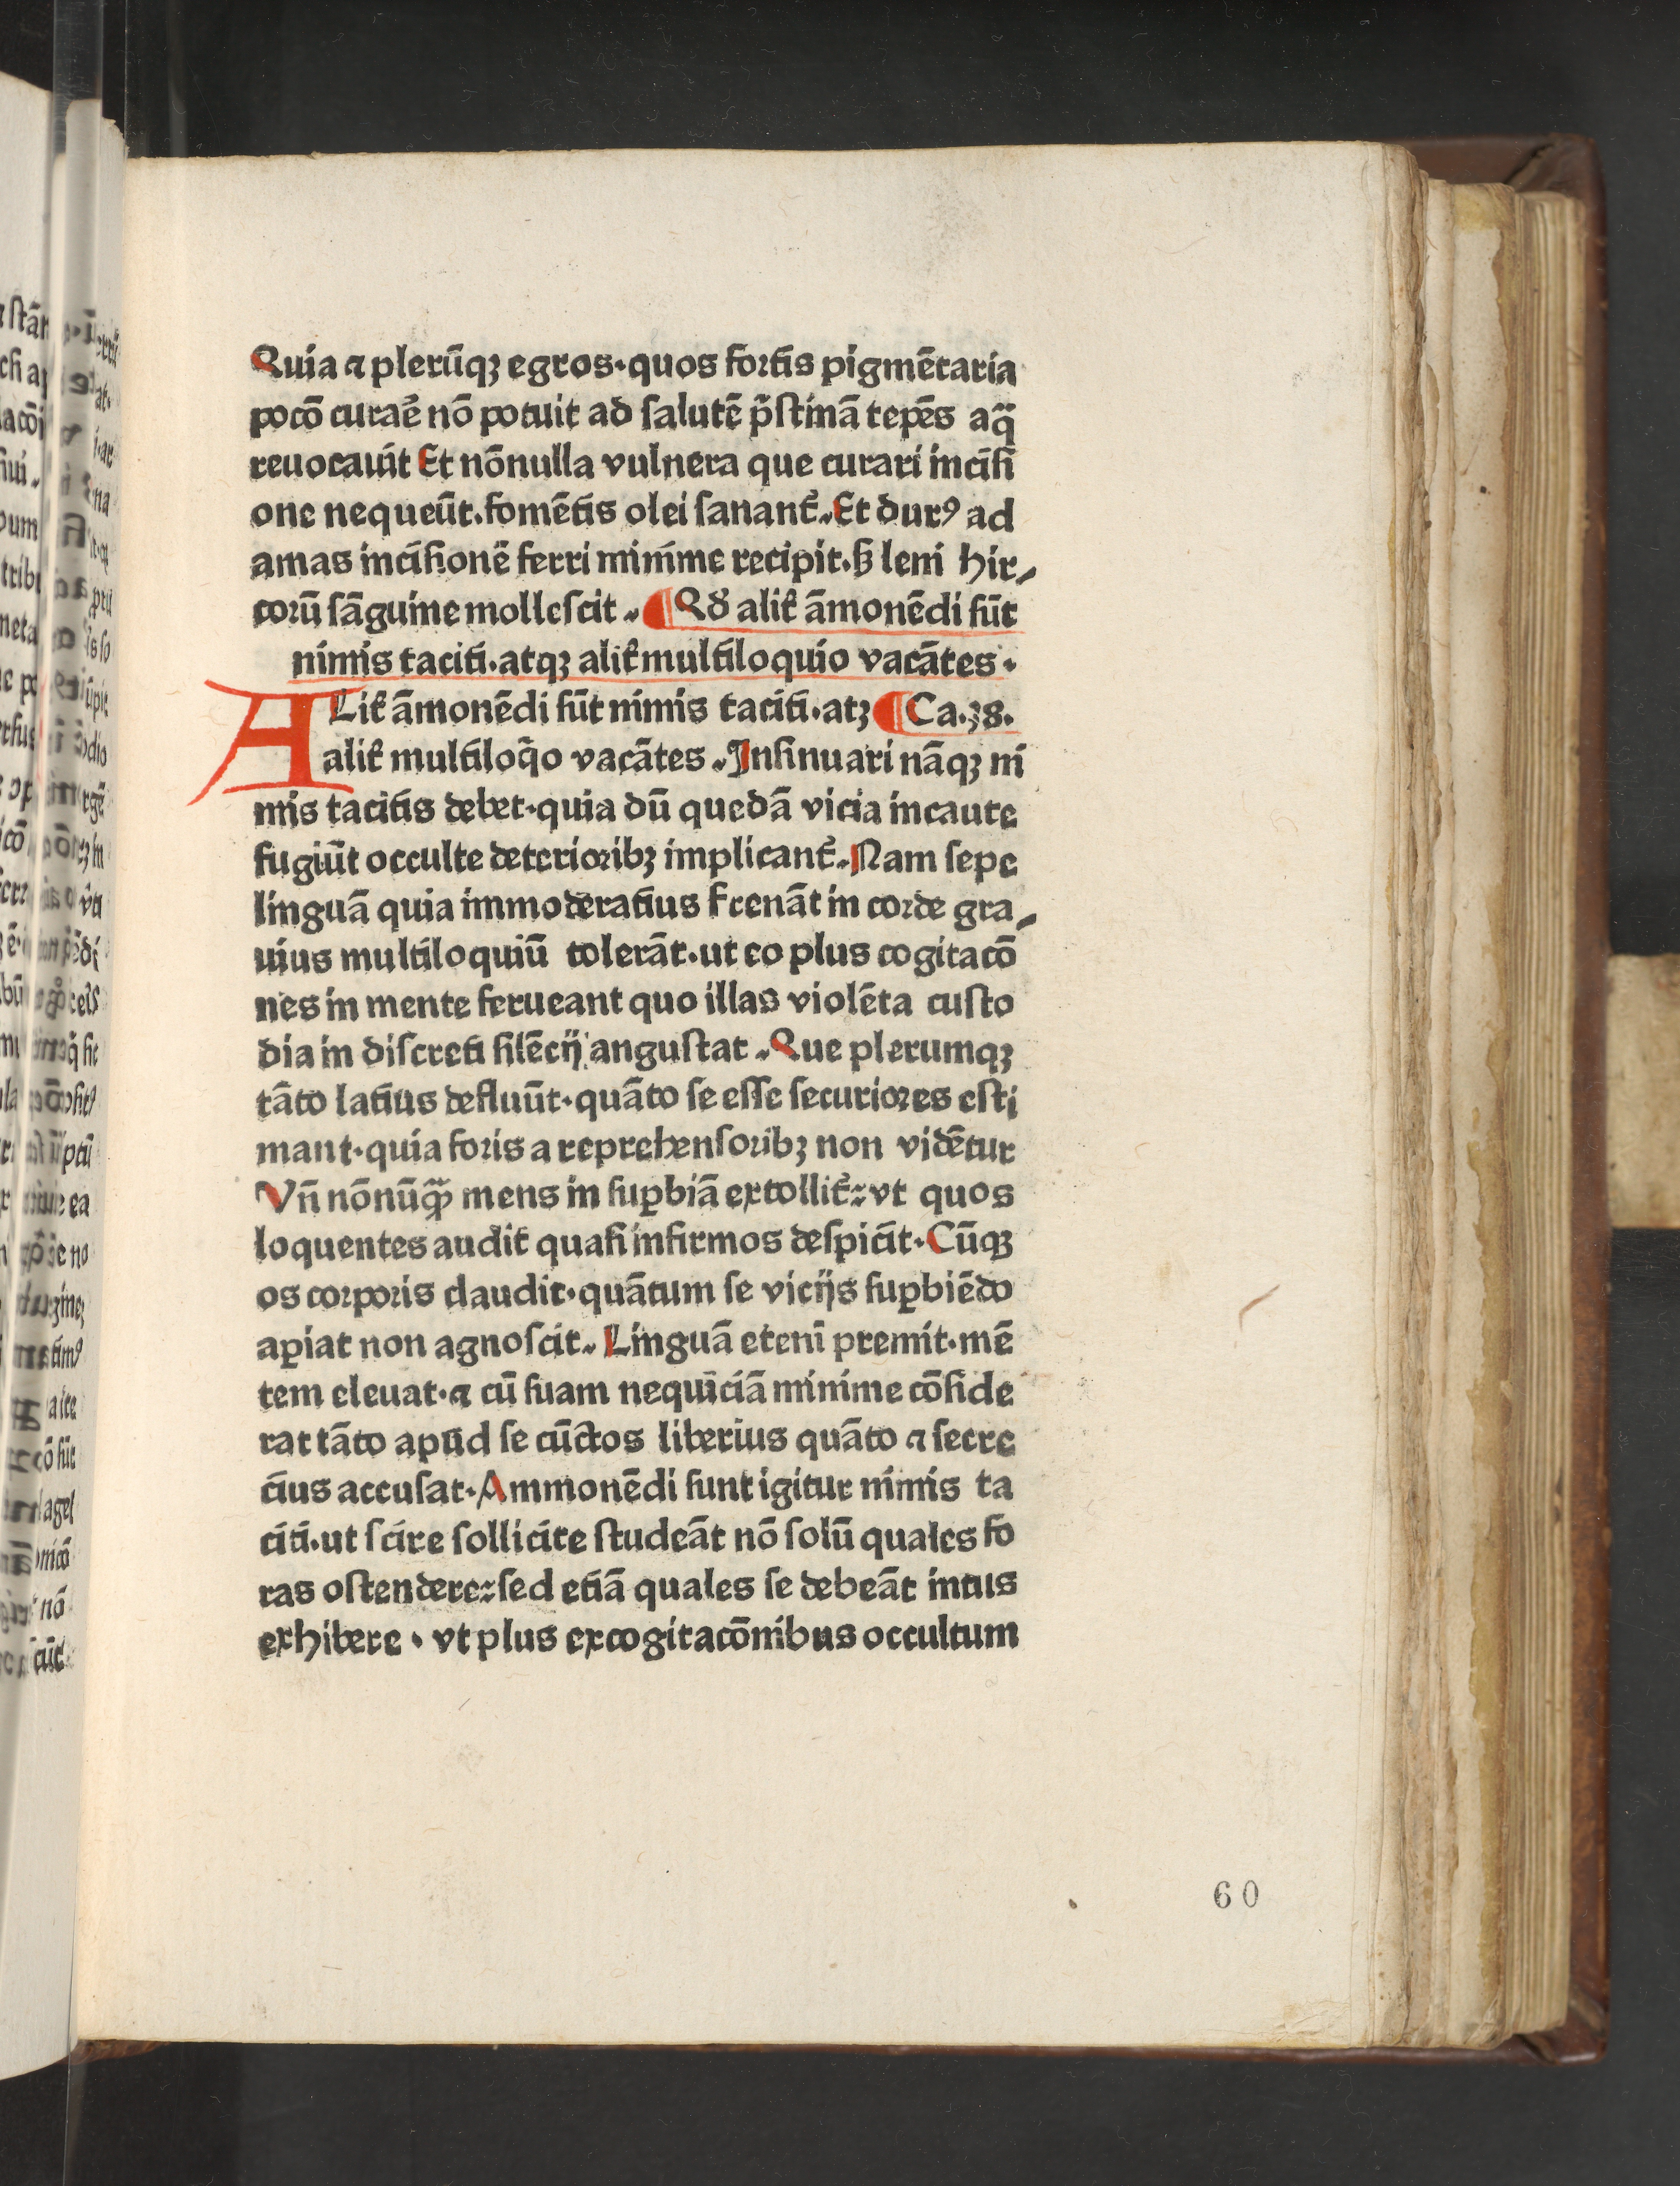 Quia ⁊ plerūqꝫ egros·quos fortis pigmētaria
pocō curaē nō potuit ad ſalutē p̄ſtinā tepēs aq̄
reuocauit Et nōnulla vulnera que curari inciſi
one nequeūt.fomētis olei ſanant᷑.Et durꝰ ad
amas inciſionē ferri minime recipit.ſꝫ leni hir⸗
corū ſāguine molleſcit. ¶Qđ alit᷑ āmonēdi ſūt
nimis taciti.atqꝫ alit᷑ multiloquio vacātes·
ALit᷑ āmonēdi ſūt nimis taciti·atꝫ ¶Ca.38.
alit᷑ multiloq̄o vacātes.Inſinuari nāqꝫ ni
mis tacitis debet·quia dū quedā vicia incaute
fugiūt occulte deterioribꝫ implicant᷑.Nam ſepe
linguā quia immoderatius frenāt in corde gra⸗
uius multiloquiū tolerāt·ut eo plus cogitacō
nes in mente ferueant quo illas violēta cuſto
dia in diſcreti ſilēcij anguſtat.Que plerumqꝫ
tāto latius defluūt·quāto ſe eſſe ſecuriores eſti
mant·quia foris a reprehenſoribꝫ non vidētur
Vn̄ nōnūq̄ꝫ mens in ſuꝑbiā extollit᷑:vt quos
loquentes audit᷑ quaſi infirmos deſpicit·Cūqꝫ
os corporis claudit·quātum ſe vicijs ſuꝑbiēdo
aꝑiat non agnoſcit. Linguā etenī premit·mē
tem eleuat·⁊ cū ſuam nequiciā minime cōſide
rat tāto apud ſe cūctos liberius quāto ⁊ ſecre
cius accuſat·Ammonēdi ſunt igitur nimis ta
citi·ut ſcire ſollicite ſtudeāt nō ſolū quales fo
ras oſtendere:ſed etiā quales ſe debeāt intus
exhibere · vt plus excogitacōnibus occultum
60